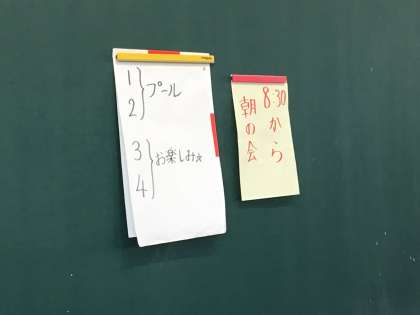 1
2
プール
3
4
お楽しみ☆
8:30から
朝の会